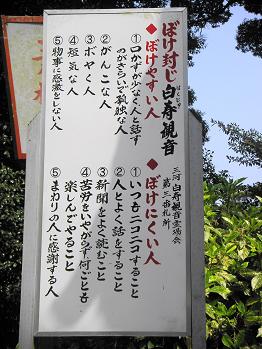 ぼけ封じ白寿観音
三河白寿観音霊場会
第三番札所
◆ぼけやすい人
①口かずが少なく人と話す
のがきらいで孤独な人
②がんこな人
③ボヤく人
④短気な人
⑤物事に感激をしない人
◆ぼけにくい人
①いつもニコニコすること
②人とよく話をすること
③新聞をよく読むこと
④苦労をいやがらず何ごとも
楽しんでやること
⑤まわりの人に感謝する人